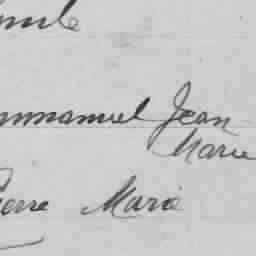 mmanuel Jean
Marie
ierre Marie